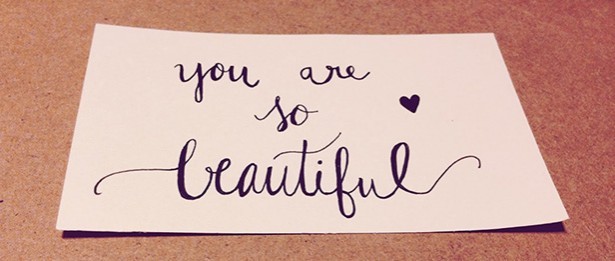 you are
so
beautiful